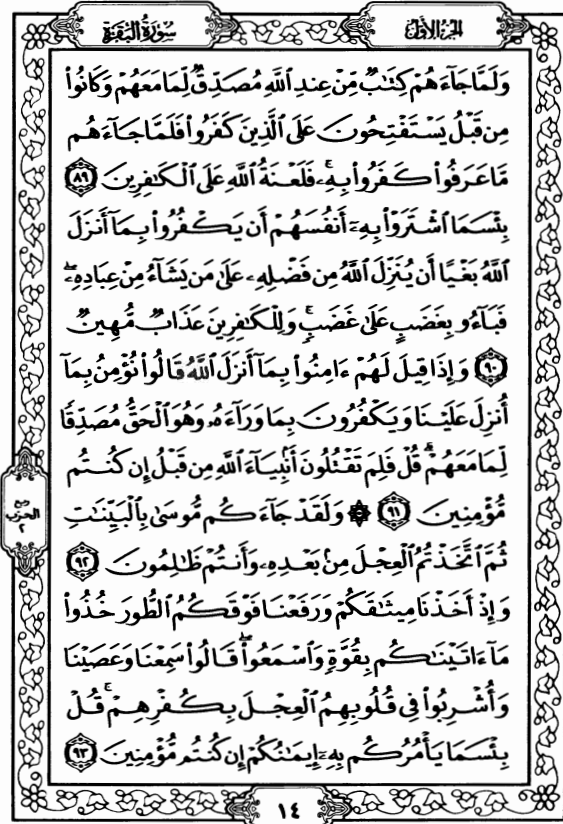 سُورَةُ البَقَرَةِ
الجُزءُ الأَوَّلُ
وَلَمَّا جَآءَهُمْ كِتَٰبٌ مِّنْ عِندِ ٱللَّهِ مُصَدِّقٌ لِّمَا مَعَهُمْ وَكَانُوا۟
مِن قَبْلُ يَسْتَفْتِحُونَ عَلَى ٱلَّذِينَ كَفَرُوا۟ فَلَمَّا جَآءَهُم
مَّا عَرَفُوا۟ كَفَرُوا۟ بِهِۦۚ فَلَعْنَةُ ٱللَّهِ عَلَى ٱلْكَٰفِرِينَ ٨٩
بِئْسَمَا ٱشْتَرَوْا۟ بِهِۦٓ أَنفُسَهُمْ أَن يَكْفُرُوا۟ بِمَآ أَنزَلَ
ٱللَّهُ بَغْيًا أَن يُنَزِّلَ ٱللَّهُ مِن فَضْلِهِۦ عَلَىٰ مَن يَشَآءُ مِنْ عِبَادِهِۦۖ
فَبَآءُو بِغَضَبٍ عَلَىٰ غَضَبٍۚ وَلِلْكَٰفِرِينَ عَذَابٌ مُّهِينٌ
٩٠ وَإِذَا قِيلَ لَهُمْ ءَامِنُوا۟ بِمَآ أَنزَلَ ٱللَّهُ قَالُوا۟ نُؤْمِنُ بِمَآ
أُنزِلَ عَلَيْنَا وَيَكْفُرُونَ بِمَا وَرَآءَهُۥ وَهُوَ ٱلْحَقُّ مُصَدِّقًا
لِّمَا مَعَهُمْۗ قُلْ فَلِمَ تَقْتُلُونَ أَنۢبِيَآءَ ٱللَّهِ مِن قَبْلُ إِن كُنتُم
مُّؤْمِنِينَ ٩١ ۞ وَلَقَدْ جَآءَكُم مُّوسَىٰ بِٱلْبَيِّنَٰتِ
ثُمَّ ٱتَّخَذْتُمُ ٱلْعِجْلَ مِنۢ بَعْدِهِۦ وَأَنتُمْ ظَٰلِمُونَ ٩٢
وَإِذْ أَخَذْنَا مِيثَٰقَكُمْ وَرَفَعْنَا فَوْقَكُمُ ٱلطُّورَ خُذُوا۟
مَآ ءَاتَيْنَٰكُم بِقُوَّةٍ وَٱسْمَعُوا۟ۖ قَالُوا۟ سَمِعْنَا وَعَصَيْنَا
وَأُشْرِبُوا۟ فِى قُلُوبِهِمُ ٱلْعِجْلَ بِكُفْرِهِمْۚ قُلْ
بِئْسَمَا يَأْمُرُكُم بِهِۦٓ إِيمَٰنُكُمْ إِن كُنتُم مُّؤْمِنِينَ ٩٣
ربع
الحزب
٢
١٤